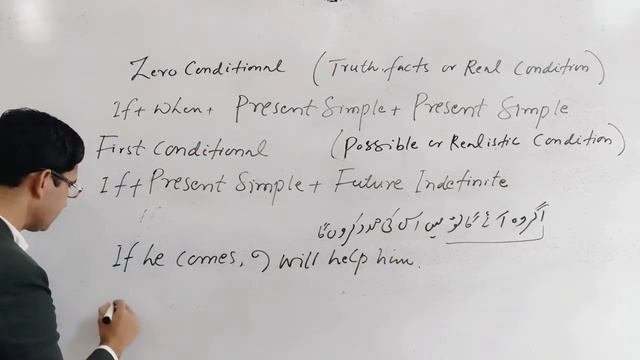 Zero Conditional (Truth.facts or Real Condition)
If + when + Present Simple + Present Simple
First Conditional (Possible or Realistic Condition)
If + Present Simple + Future Indefinite
If
اگر وہ آئے گا تو میں اس کی مدد کروں گا
If he comes, I will help him.